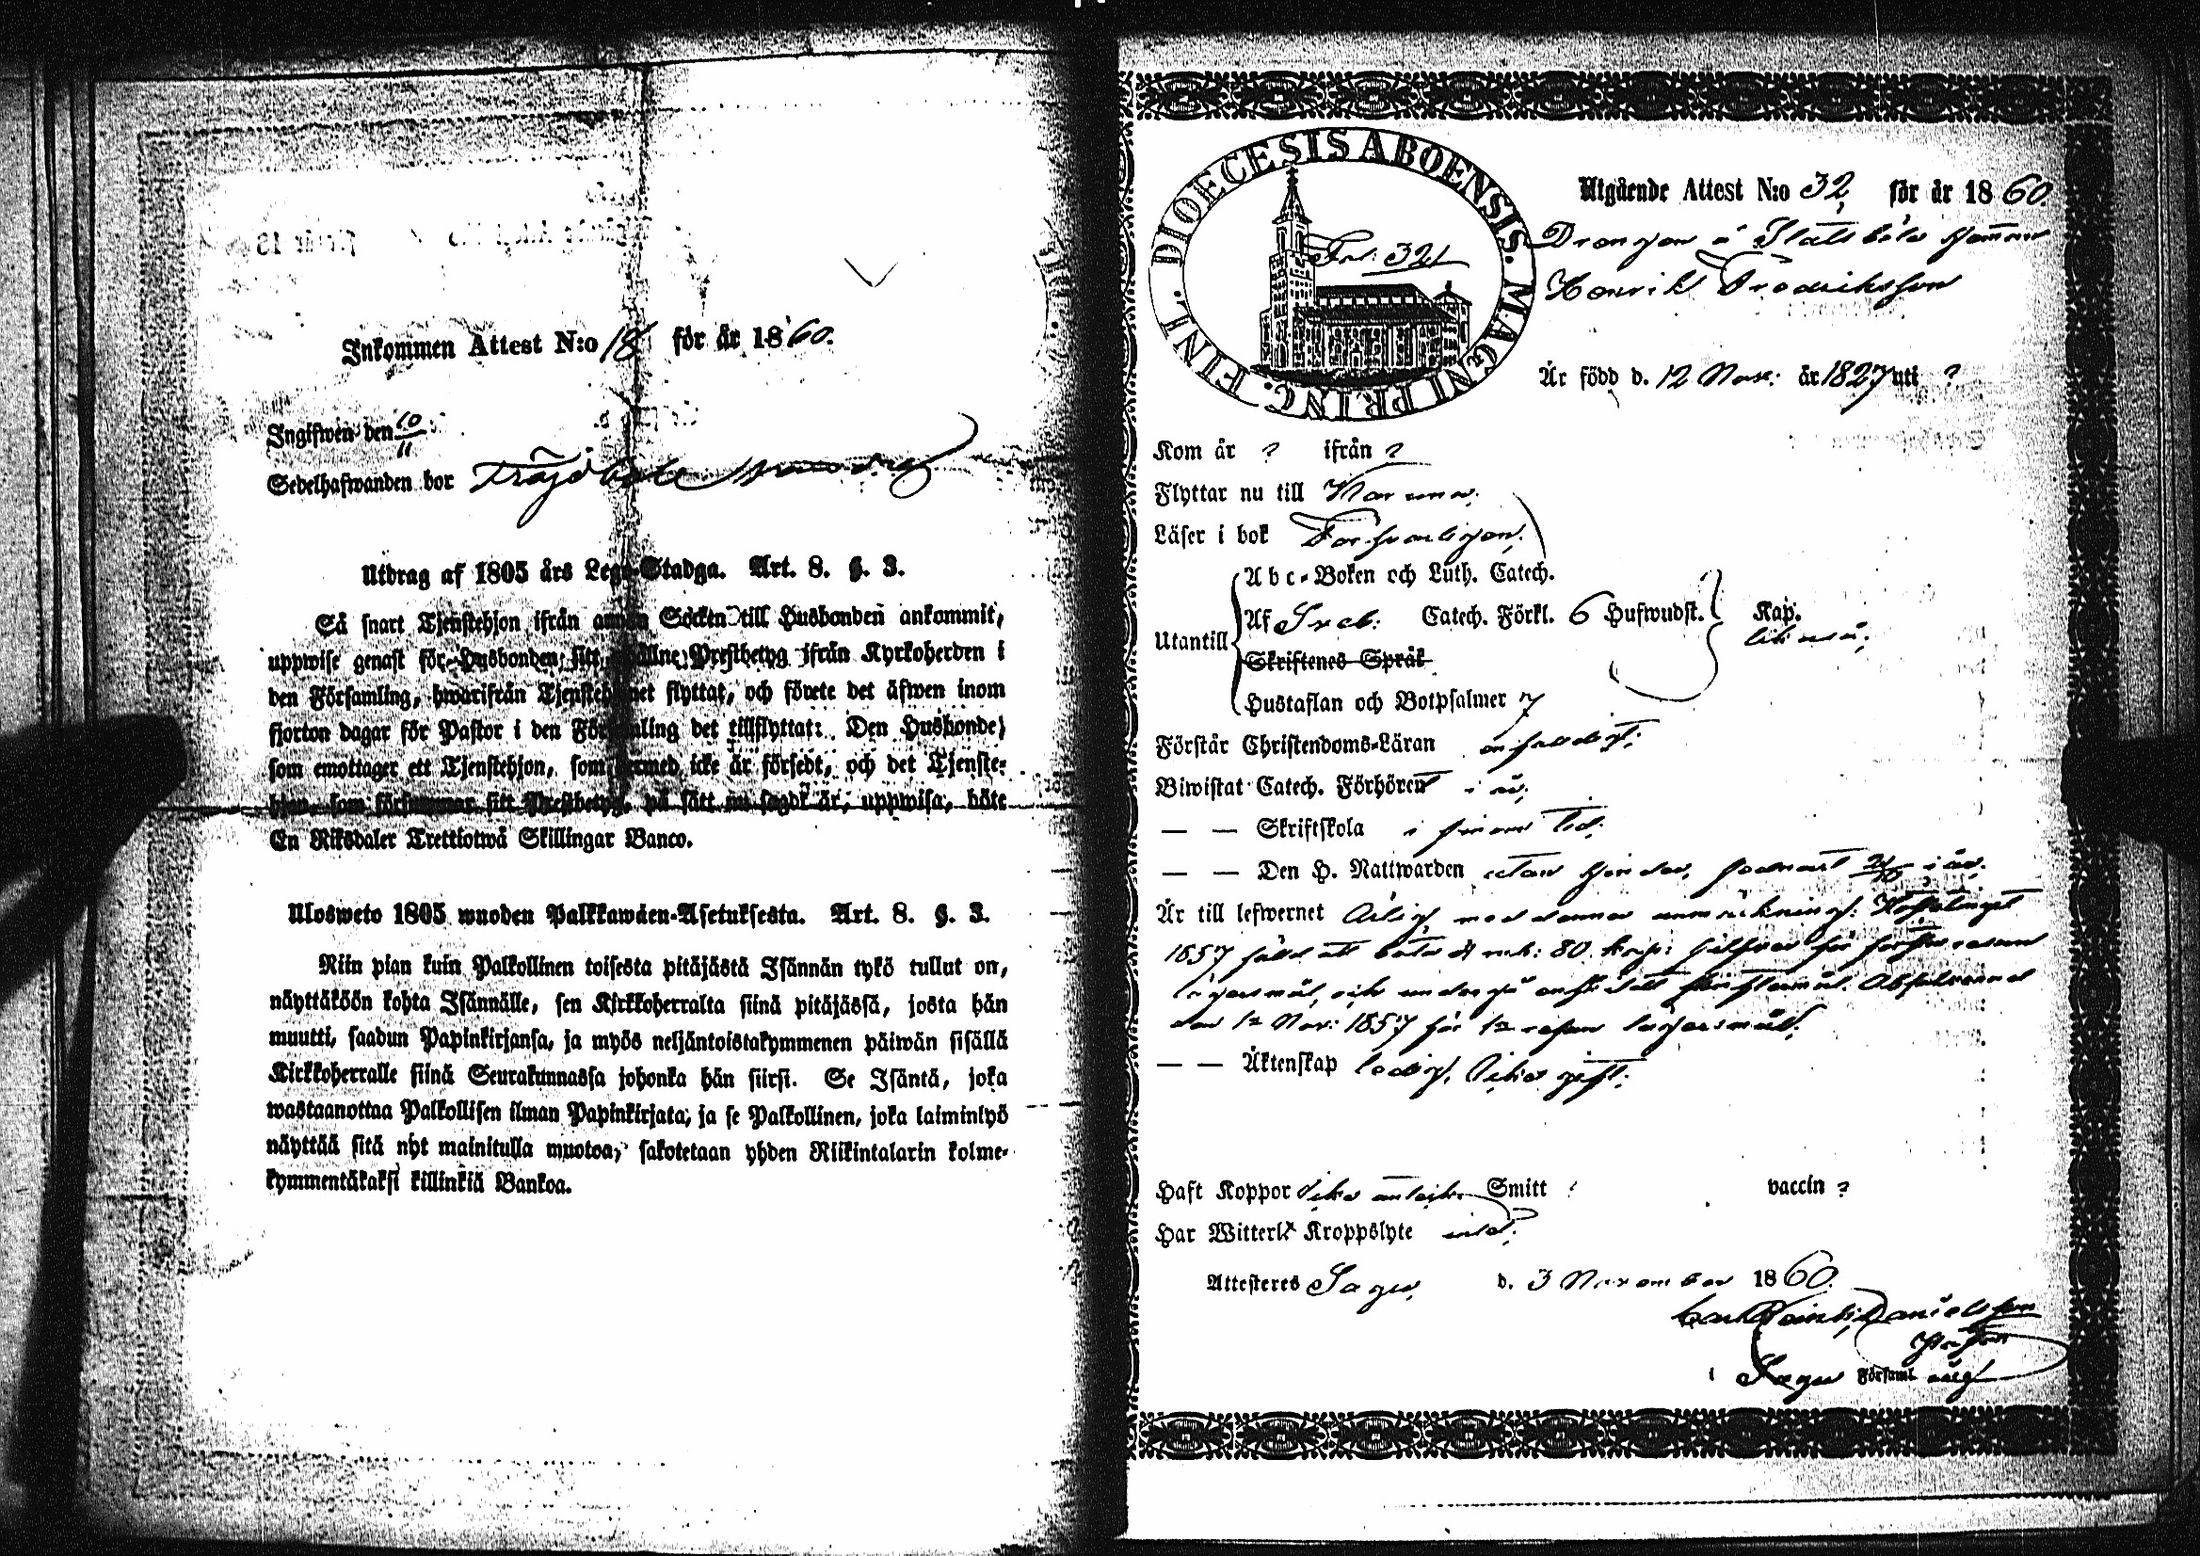 Inkommen Attest N:o 18 för år 1860.
Ingifwen den 10/11
Sedelhafwanden bor Träsböle
Utdrag af 1805 års Lego-Stadga. Art. 8. §. 3.
Så snart Tjenstehjon ifrån annan Socken till Husbonden ankommit,
uppwise genast för Husbonden sitt Prestbetyg ifrån Kyrkoherden i
den Församling, hwarifrån Tjenstehjonet flyttat, och förete det äfwen inom
fjorton dagar för Pastor i den Församling det tillflyttat: Den Husbonde,
som emottager ett Tjenstehjon, som hermed icke är försedt, och det Tjenste-
hjon, som försummar sitt Prestbetyg, på sätt nu sagdt är, uppwisa, böte
En Riksdaler Trettiotwå Skillingar Banco.
Ulosweto 1805 wuoden Palkkawäen-Asetuksesta. Art. 8. §. 3.
Niin pian kuin Palkollinen toisesta pitäjästä Isännän tykö tullut on,
näyttäköön kohta Isännälle, sen Kirkkoherralta siinä pitäjässä, josta hän
muutti, saadun Papinkirjansa, ja myös neljäntoistakymmenen päiwän sisällä
Kirkkoherralle siinä Seurakunnassa johonka hän siirsi. Se Isäntä, joka
wastaanottaa Palkollisen ilman Papinkirjata, ja se Palkollinen, joka laiminlyö
näyttää sitä nyt mainitulla muotoa, sakotetaan yhden Riikintalarin kolme-
kymmentäkaksi killinkiä Bankoa.
DIOECESIS ABOENSIS. MAGNI PRINC. FINL.
Fol: 321
Utgående Attest N:o 32, för år 1860.
Drengen å
Henrik Fredriksson
Är född d. 12 Nov: år 1827 uti ?
Kom år ? ifrån ?
Flyttar nu till
Läser i bok Försvarligen,
Abc-Boken och Luth. Catech.
Utantill Af Sveb: Catech. Förkl. 6 Hufwudst. Kap.
likaså;
Skriftenes Språk
Hustaflan och Botpsalmer 7
Förstår Christendoms-Läran enfaldigt;
Biwistat Catech. Förhören i år;
— — Skriftskola i sinom tid;
— — Den H. Nattwarden utan hinder, i år.
Är till lefwernet Ärlig med denna anmärkning:
1857 fäld att böta 80 kop: silfver för
lägersmål, och undergå enskildt skriftermål. Absolverad
den 12 Nov: 1857 för lägersmål.
— — Äktenskap ledig, icke gift;
Haft Koppor Smitt ? vaccin ?
Har Witterl. Kroppslyte intet;
Attesteres Sagu, d. 3 November 1860.
Danielsson
i Sagu Församl.